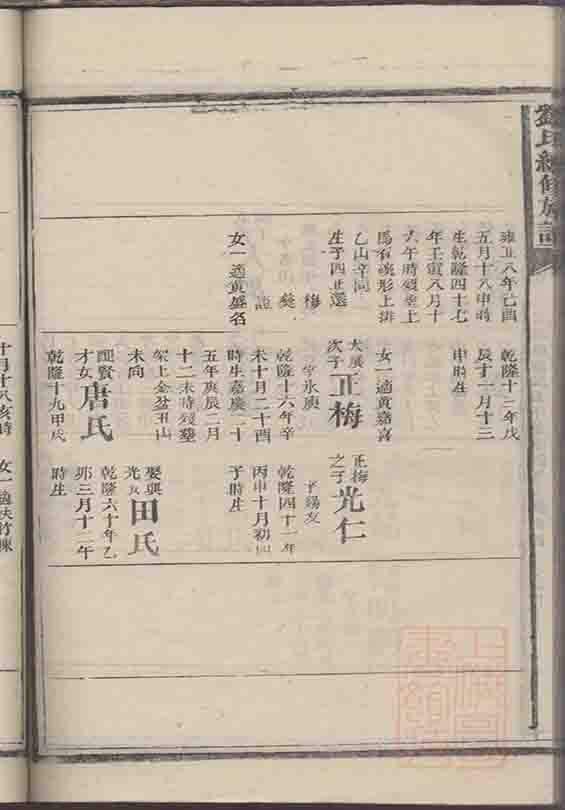 劉氏續修族譜
雍正八年己酉
五月十八申時
生乾隆四十七
年壬寅八月十
六午時殁堂上
馬有碗形上排
乙山辛向
生子四正選
梅
女一適黃盛名
乾隆十三年戊
辰十一月十三
申時生
女一適黃嘉喜
大展
次子正梅
字永庚
乾隆十六年辛
未十月二十酉
時生嘉慶二十
五年庚辰二月
十二未時殁墓
架上金盆丑山
未向
配賢
才女唐氏
乾隆十九甲戌
正梅
之子光仁
字錫友
乾隆四十一年
丙申十月初四
子時生
娶與
光女田氏
乾隆六十年乙
卯三月十二午
時生
十月十八亥時
女一適扶竹棟